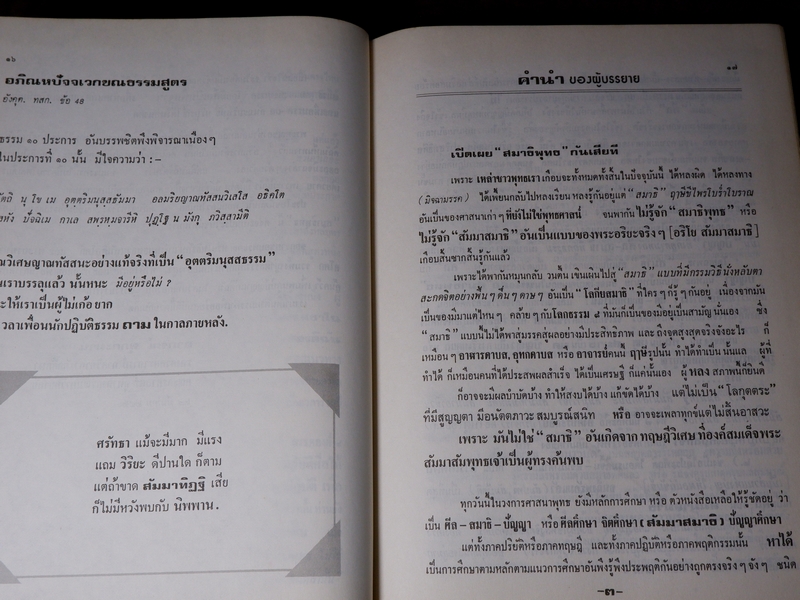 ๑๖
อภิณหปัจจเวกขณธรรมสูตร
อังคุต. ทสก. ข้อ 48
ธรรม ๑๐ ประการ อันบรรพชิตพึงพิจารณาเนืองๆ
ในประการที่ ๑๐ นั้น มีใจความว่า :–
นุ โข เม อุตตริมนุสสธัมมา อลมริยญาณทัสสนวิเสโส อธิคโต
ปัจฉิเม กาเล สพรหมจารีหิ ปุฏโฐ น มังกุ ภวิสสามีติ
ณวิเศษญาณทัสสนะอย่างแท้จริงที่เป็น “อุตตริมนุสสธรรม”
แราบรรลุแล้ว นั้นหนะ มีอยู่หรือไม่ ?
ะให้เราเป็นผู้ไม่เก้อยาก
วลาเพื่อนนักปฏิบัติธรรม ถาม ในกาลภายหลัง.
ศรัทธา แม้จะมีมาก มีแรง
แถม วิริยะ ดีปานใด ก็ตาม
แต่ถ้าขาด สัมมาทิฏฐิ เสีย
ก็ไม่มีหวังพบกับ นิพพาน .
๑๗
คำนำ ของผู้บรรยาย
เปิดเผย “สมาธิพุทธ” กันเสียที
เพราะ เหล่าชาวพุทธเรา เกือบจะทั้งหมดทั้งสิ้นในปัจจุบันนี้ ได้หลงผิด ได้หลงทาง
(มิจฉามรรค) ได้เพี้ยนกลับไปหลงเรียน หลงรู้กันอยู่แต่ “สมาธิ” ฤๅษีชีไพรโบร่ำโบราณ
อันเป็นของศาสนาเก่าๆ ที่ยังไม่ใช่พุทธศาสน์ จนพากัน ไม่รู้จัก “สมาธิพุทธ” หรือ
ไม่รู้จัก “สัมมาสมาธิ” อันเป็นแบบของพระอริยะจริงๆ [อริโย สัมมาสมาธิ]
เกือบสิ้นซากสิ้นรู้กันแล้ว
เพราะได้พากันหมุนกลับ วนคืน เช่นแผ่นไปสู่ “สมาธิ” แบบที่มีกรรมวิธีนั่งหลับตา
สะกดจิตอย่างพื้นๆ ตื้นๆ ดาษๆ อันเป็น “โลกียสมาธิ” ที่ใครๆ ก็รู้ๆ กันอยู่ เนื่องจากมัน
เป็นของมีมาแต่ไหนๆ คล้ายๆ กับโลกธรรม ๘ ที่มันก็เป็นของมีอยู่เป็นสามัญ นั่นเอง ซึ่ง
“สมาธิ” แบบนี้ไม่ได้พาสู่มรรคสู่ผลอย่างมีประสิทธิภาพ และ ถึงจุดสูงสุดจริงจังอะไร ก็
เหมือนๆ อาฬารดาบส, อุทกดาบส หรือ อาจารย์คนนี้ ฤๅษีรูปนั้น ทำได้ทำเป็น นั้นแล ผู้ที่
ทำได้ ก็เหมือนคนที่ได้ประสพผลสำเร็จ ได้เป็นเศรษฐี ก็แค่นั้นเอง ผู้ หลง สภาพนี้ก็ยินดี
ก็อาจจะมีผลบำบัดบ้าง ทำให้สงบได้บ้าง แก้ขัดได้บ้าง แต่ไม่เป็น “โลกุตตระ”
ที่มีสูญญตา มีอนัตตภาวะ สมบูรณ์สนิท หรือ อาจจะเพลาทุกข์แต่ไม่สิ้นอาสวะ
เพราะ มันไม่ใช่ “สมาธิ” อันเกิดจาก ทฤษฎีวิเศษ ที่องค์สมเด็จพระ
สัมมาสัมพุทธเจ้าเป็นผู้ทรงค้นพบ
ทุกวันนี้ในวงการศาสนาพุทธ ยังมีหลักการศึกษา หรือ ตัวหนังสือเหลือให้รู้ชัดอยู่ ว่า
เป็น ศีล – สมาธิ – ปัญญา หรือ ศีลศึกษา จิตศึกษา (สัมมาสมาธิ) ปัญญาศึกษา
แต่ทั้งภาคปริยัติหรือภาคทฤษฎี และทั้งภาคปฏิบัติหรือภาคพฤติกรรมนั้น หาได้
เป็นการศึกษาตามหลักตามแนวการศึกษาอันพึงรู้พึงประพฤติกันอย่างถูกตรงจริงๆ จังๆ ชนิด
–๓–